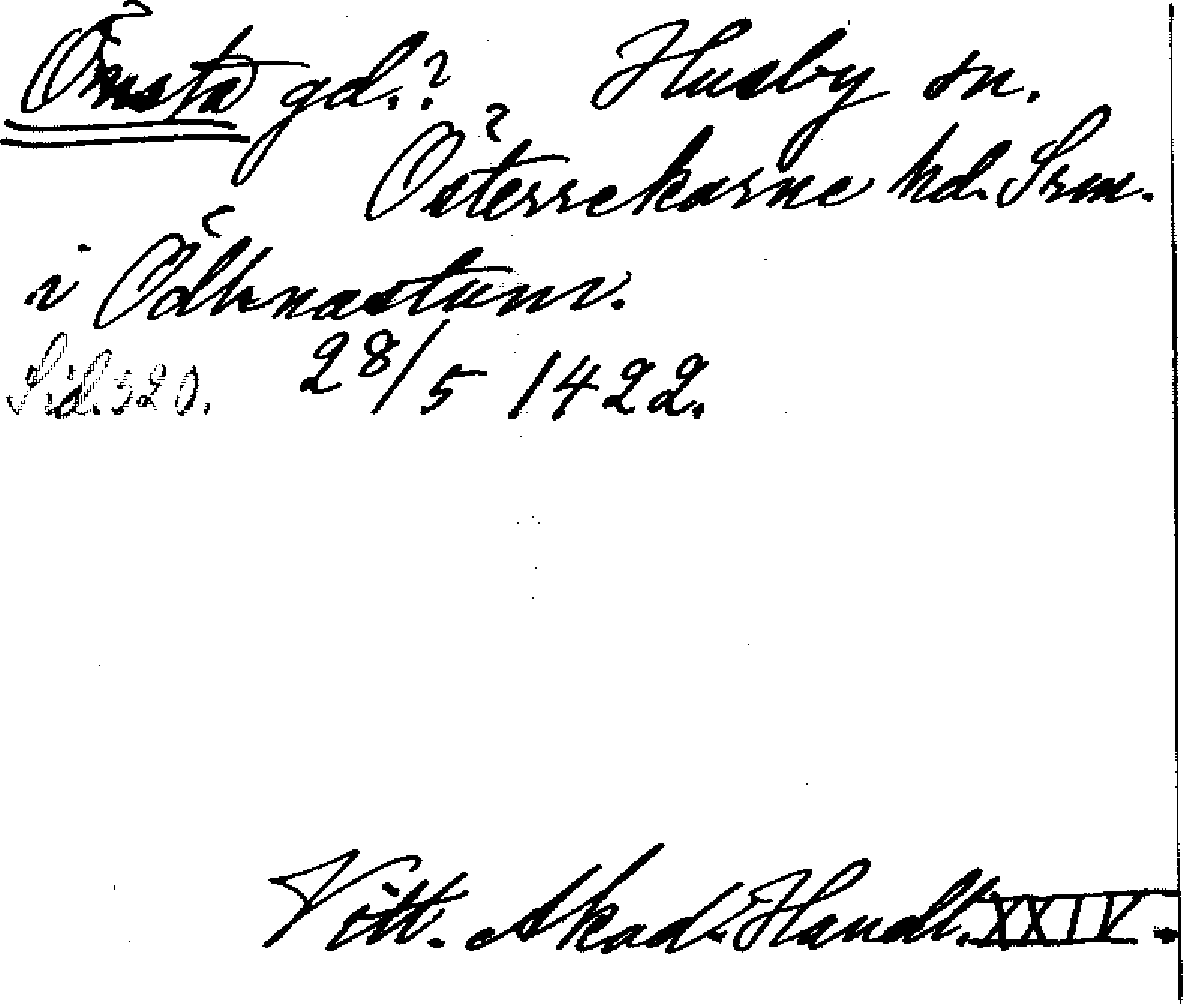 Önsta gd.? Husby sn.
Österrekarne hd. Srm.
i Ödhnastum.
Sid. 320. 28/5 1422.
Vitt. Akad. Handl. XXIV.